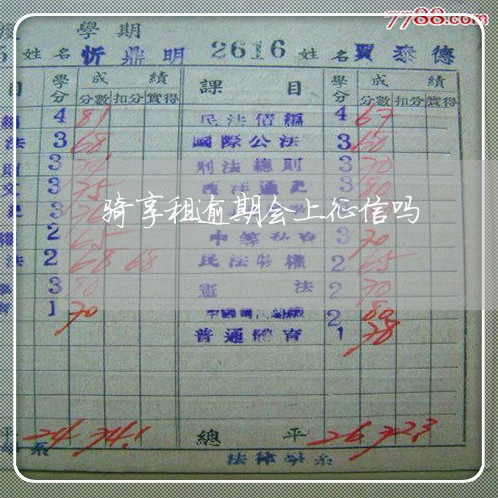 7788.com
學期
姓名 忻鼎明 2616 姓名 賈泰德
目 學分 成績 課目 學分 成績
分數 扣分 實得 分數 扣分 實得
4 81 民法債編 4 67
法 3 68 國際公法 3 60
3 刑法總則 3 70
3 75 3 80
骑享租逾期会上征信吗
2 65 3 70
法 2 68 68 民法物權 2 65
3 80 憲法 2 70
1 70 2 80
普通體育 1 78
平 24 74.1 總平 26 72.3
系 法律學系